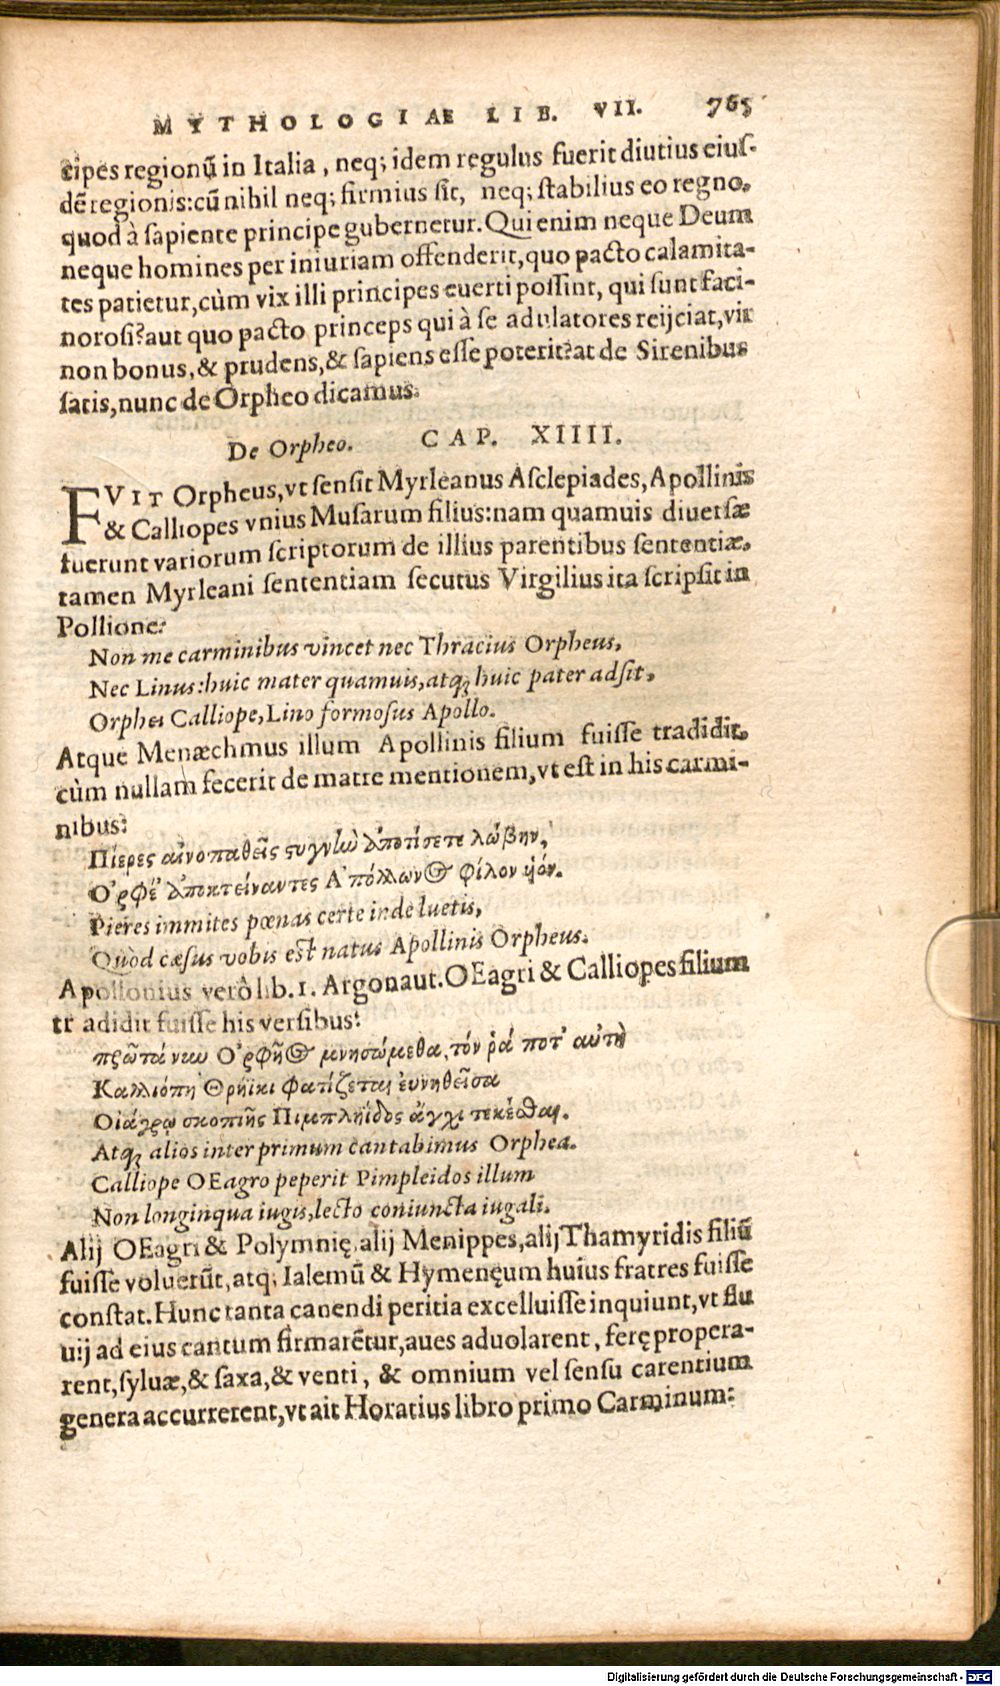 MYTHOLOGIAE LIB. VII. 765
cipes regionũ in Italia, neq; idem regulus fuerit diutius eiuſ-
dẽ regionis: cũ nihil neq; firmius ſit, neq; ſtabilius eo regno,
quod à ſapiente principe gubernetur. Qui enim neque Deum
neque homines per iniuriam offenderit, quo pacto calamita-
tes patietur, cùm vix illi principes euerti poſſint, qui ſunt faci-
noroſi? aut quo pacto princeps qui à ſe adulatores reijciat, vir
non bonus, & prudens, & ſapiens eſſe poterit? at de Sirenibus
ſatis, nunc de Orpheo dicamus.
De Orpheo. CAP. XIIII.
FVIT Orpheus, vt ſenſit Myrleanus Aſclepiades, Apollinis
& Calliopes vnius Muſarum filius: nam quamuis diuerſæ
fuerunt variorum ſcriptorum de illius parentibus ſententiæ,
tamen Myrleani ſententiam ſecutus Virgilius ita ſcripſit in
Pollione:
Non me carminibus vincet nec Thracius Orpheus,
Nec Linus: huic mater quamuis, atq; huic pater adſit,
Orphei Calliope, Lino formoſus Apollo.
Atque Menæchmus illum Apollinis filium fuiſſe tradidit,
cùm nullam fecerit de matre mentionem, vt eſt in his carmi-
nibus:
Πίερες αἰνοπαθεῖς συγνὼ ἀποτίσετε λώβην,
Ὀρφέ ἀποκτείναντες Ἀπόλλωνος φίλον ὑόν.
Pieres immites pœnas certe inde luetis,
Quòd cæſus vobis eſt natus Apollinis Orpheus.
Apollonius verò lib. 1. Argonaut. OEagri & Calliopes filium
tradidit fuiſſe his verſibus:
πρῶτά νιω Ὀρφῆος μνησώμεθα, τόν ῥά ποτ' αὐτὴ
Καλλιόπη Θρήϊκι φατίζεται ἐυνηθεῖσα
Οἰάγρῳ σκοπιῆς Πιμπληΐδος ἄγχι τεκέσθαι.
Atq; alios inter primum cantabimus Orphea.
Calliope OEagro peperit Pimpleidos illum
Non longinqua iugis, lecto coniuncta iugali.
Alij OEagri & Polymnię, alij Menippes, alij Thamyridis filiũ
fuiſſe voluerũt, atq; Ialemũ & Hymenęum huius fratres fuiſſe
conſtat. Hunc tanta canendi peritia excelluiſſe inquiunt, vt flu
uij ad eius cantum firmarẽtur, aues aduolarent, ferę propera-
rent, ſyluæ, & ſaxa, & venti, & omnium vel ſenſu carentium
genera accurrerent, vt ait Horatius libro primo Carminum:
Digitalisierung gefördert durch die Deutsche Forschungsgemeinschaft - DFG